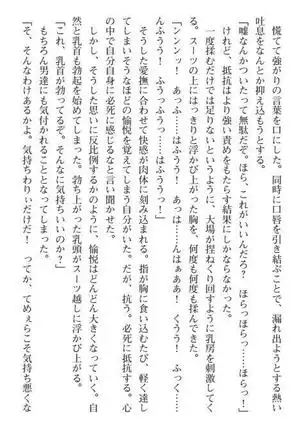 慌てて偽りの言葉を口にした。同時に口唇を引き結ぶことで、漏れ出ようとする熱い
吐息をなんとか抑え込もうとする。
「嘘なんかついたって無駄だ。ほら、これがいいんだろ？ ほらっほらっ……ほらっ！」
けれど、抵抗はより強い責めをもたらす結果にしかならなかった。
一度揉むだけでは足りないというように、大場が捏ねくり回すように乳房を刺激してく
る。スーツの上にはっきりと浮かび上がった胸を、何度も何度も揉んできた。
「ンンンッ！ あっふ……はふうう！ あっは……んはぁああ！ くううう！ ふっく……
んふうう！ はふうう……はふううっ！」
そうした愛撫に合わせて快感が肉体に刻み込まれる。指が胸に食い込むたび、軽く達し
てしまいそうなほどの愉悦を覚えてしまう自分がいた。だが、抗う。必死に抵抗する。心
の中で自分自身に必死に感じるなと言い聞かせた。
しかし、そうした思いに反比例するかのように、愉悦はどんどん大きくなっていく。自
然と乳首も勃起を始めてしまった。勃ち上がった乳頭がスーツ越しに浮かび上がる。
「これ、乳首が勃ってるぞ。そんなに気持ちいいのか？」
もちろん男達にも気付かれることとなってしまった。
「そ、そんなわけあるかよ。気持ちわりぃだけだ！ って、てめぇらこそ気持ち悪くな